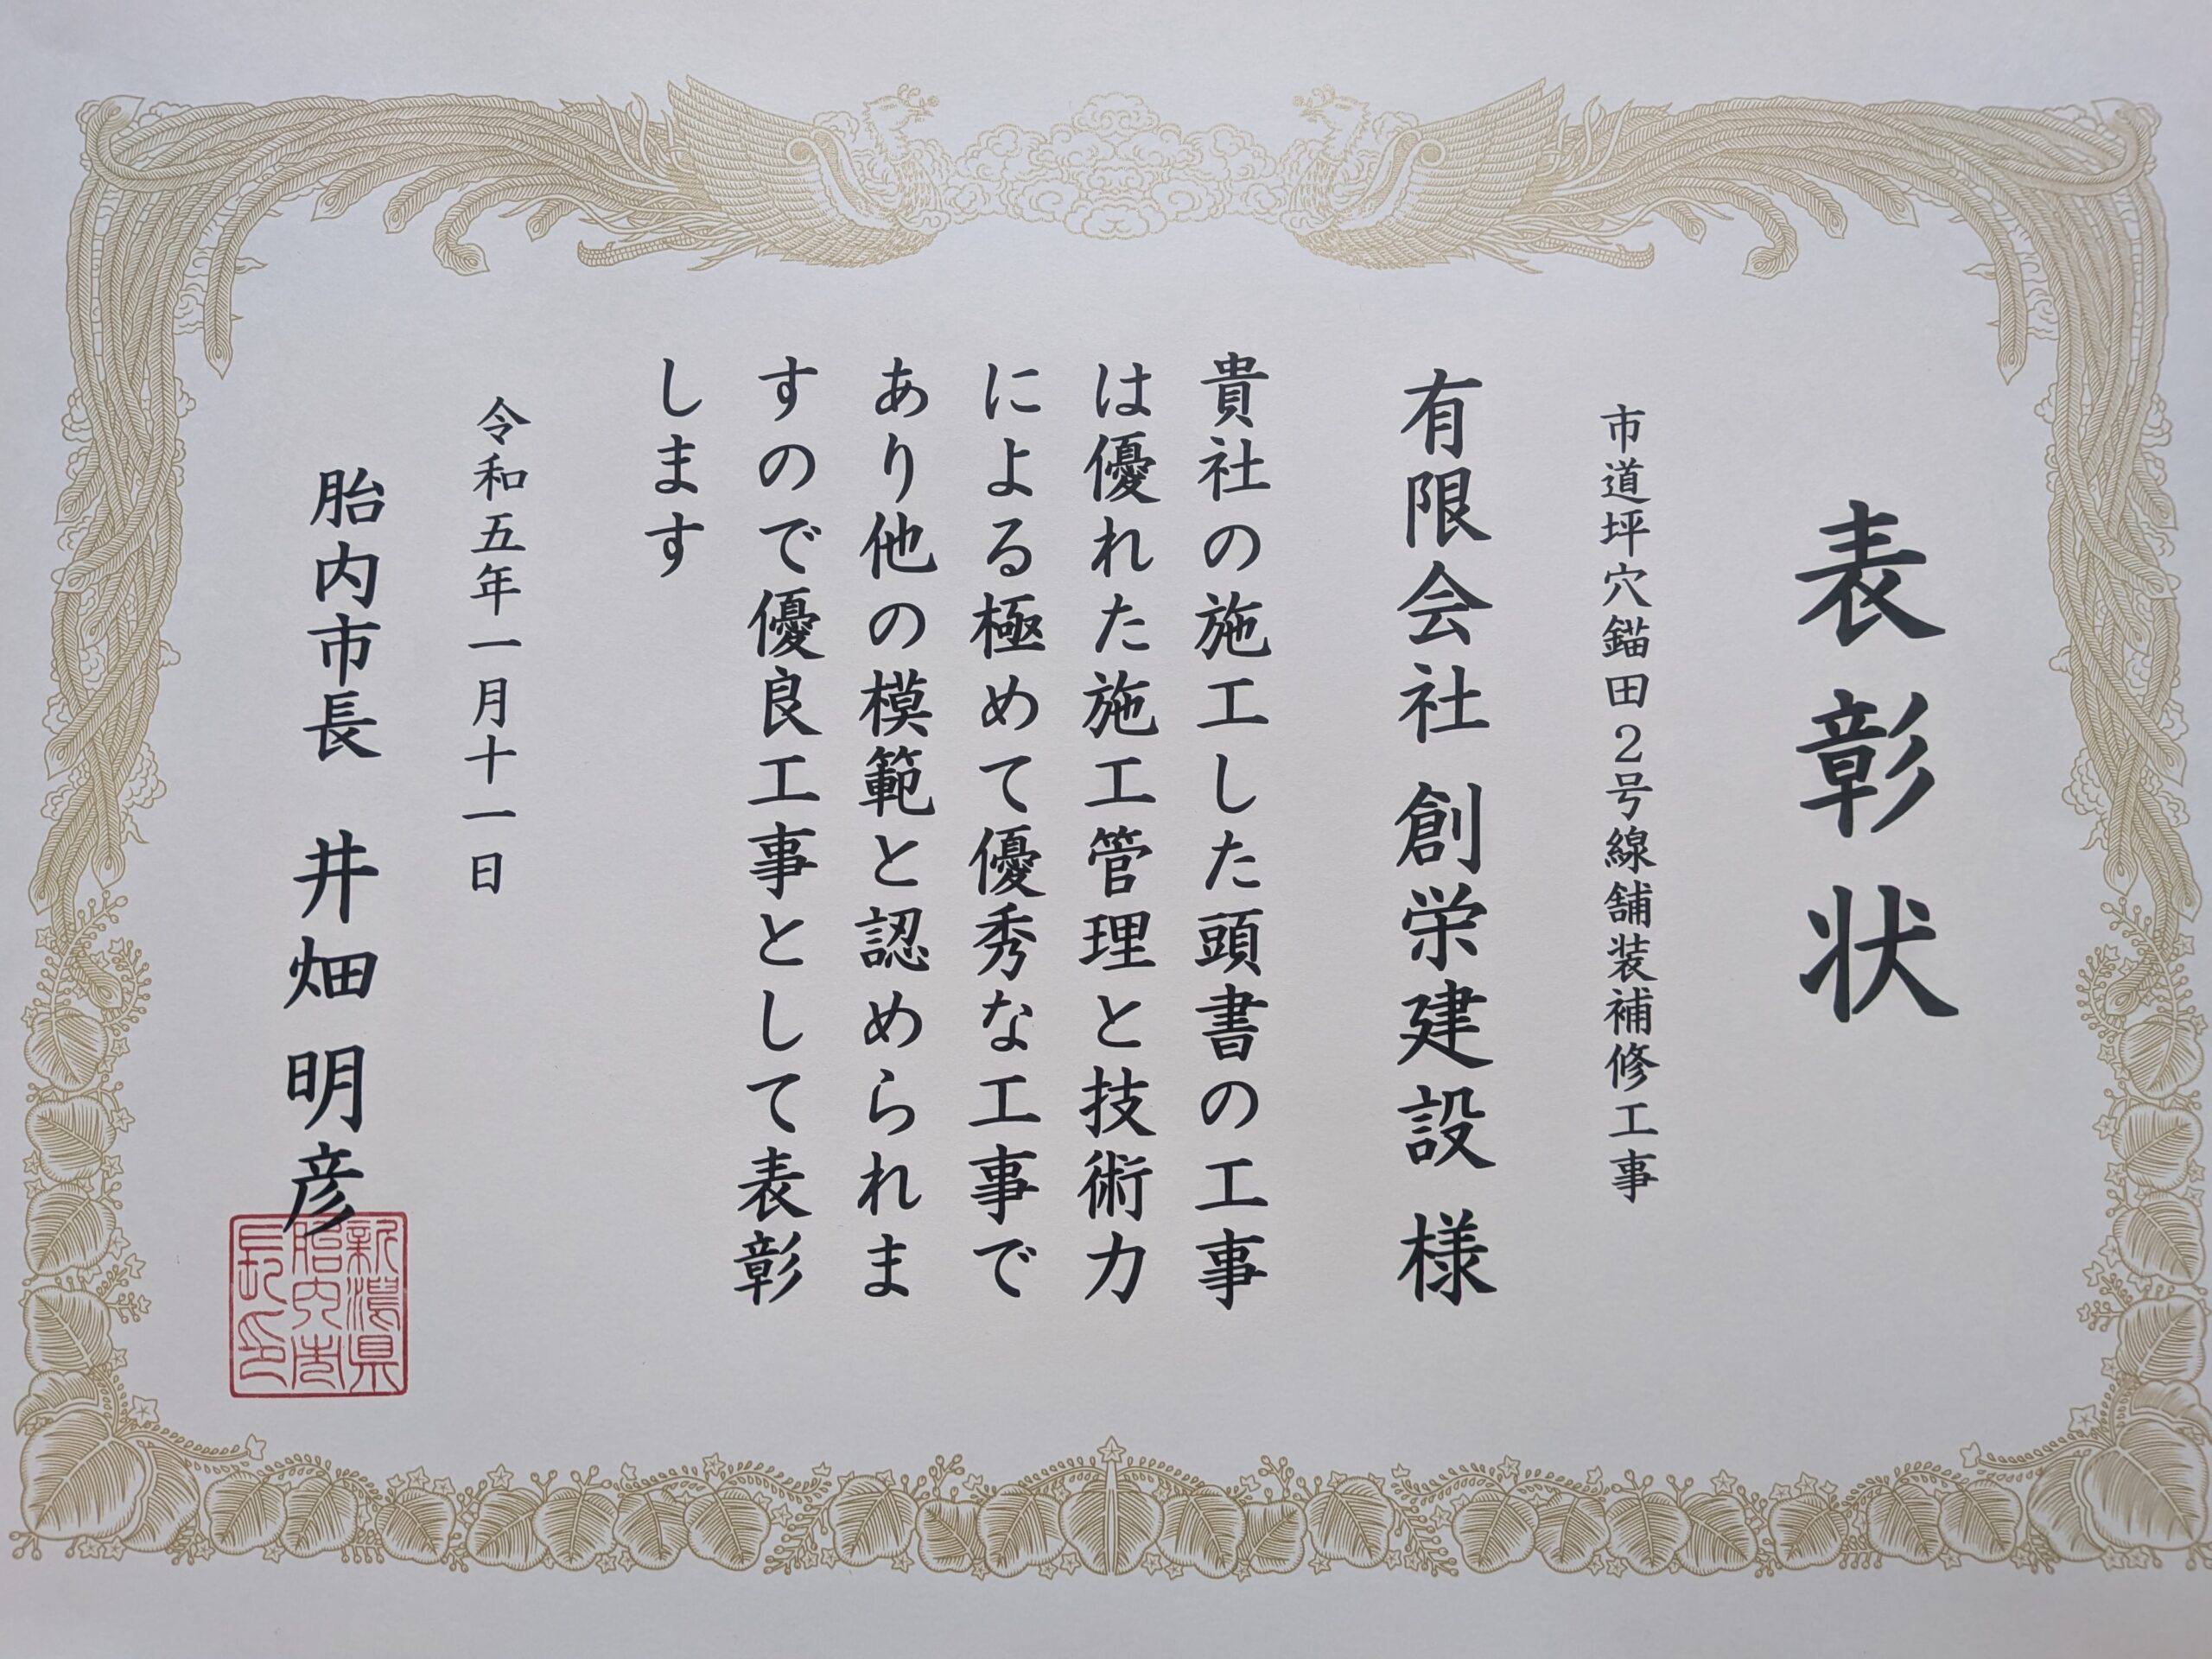 表彰状
市道坪穴錨田２号線舗装補修工事
有限会社 創栄建設 様
貴社の施工した頭書の工事
は優れた施工管理と技術力
による極めて優秀な工事で
あり他の模範と認められま
すので優良工事として表彰
します
令和五年一月十一日
胎内市長 井畑明彦
新潟県
胎内市
長印